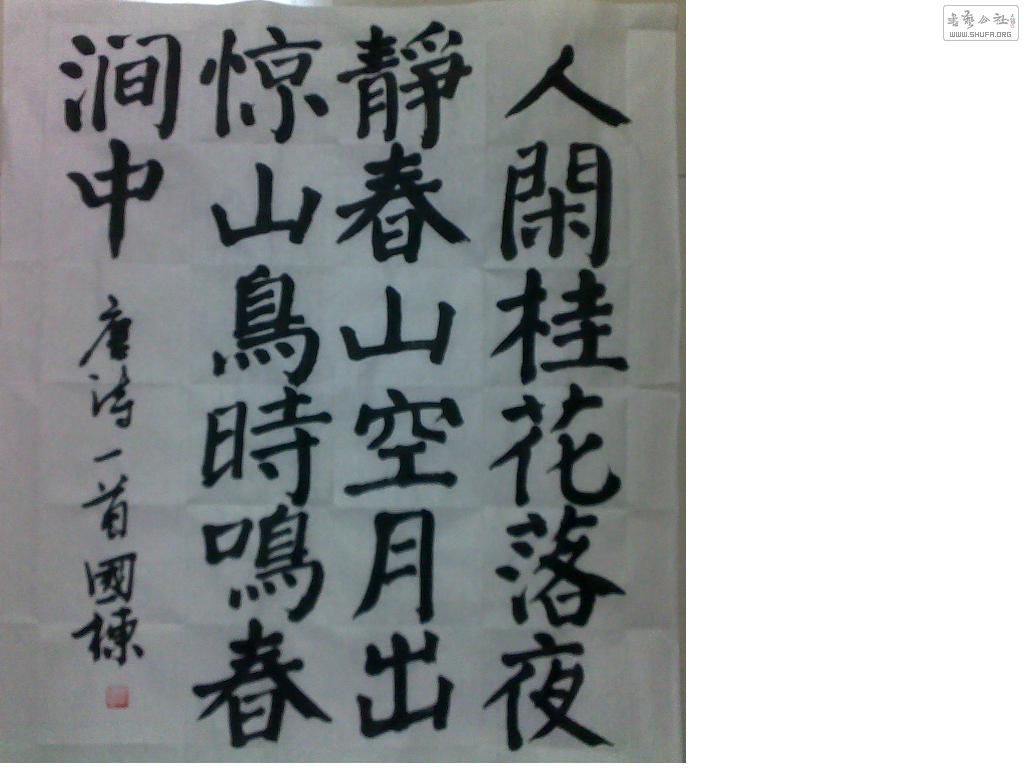 人閑桂花落夜
靜春山空月出
惊山鳥時鳴春
涧中
唐诗一首國棟
书艺公社
WWW.SHUFA.ORG